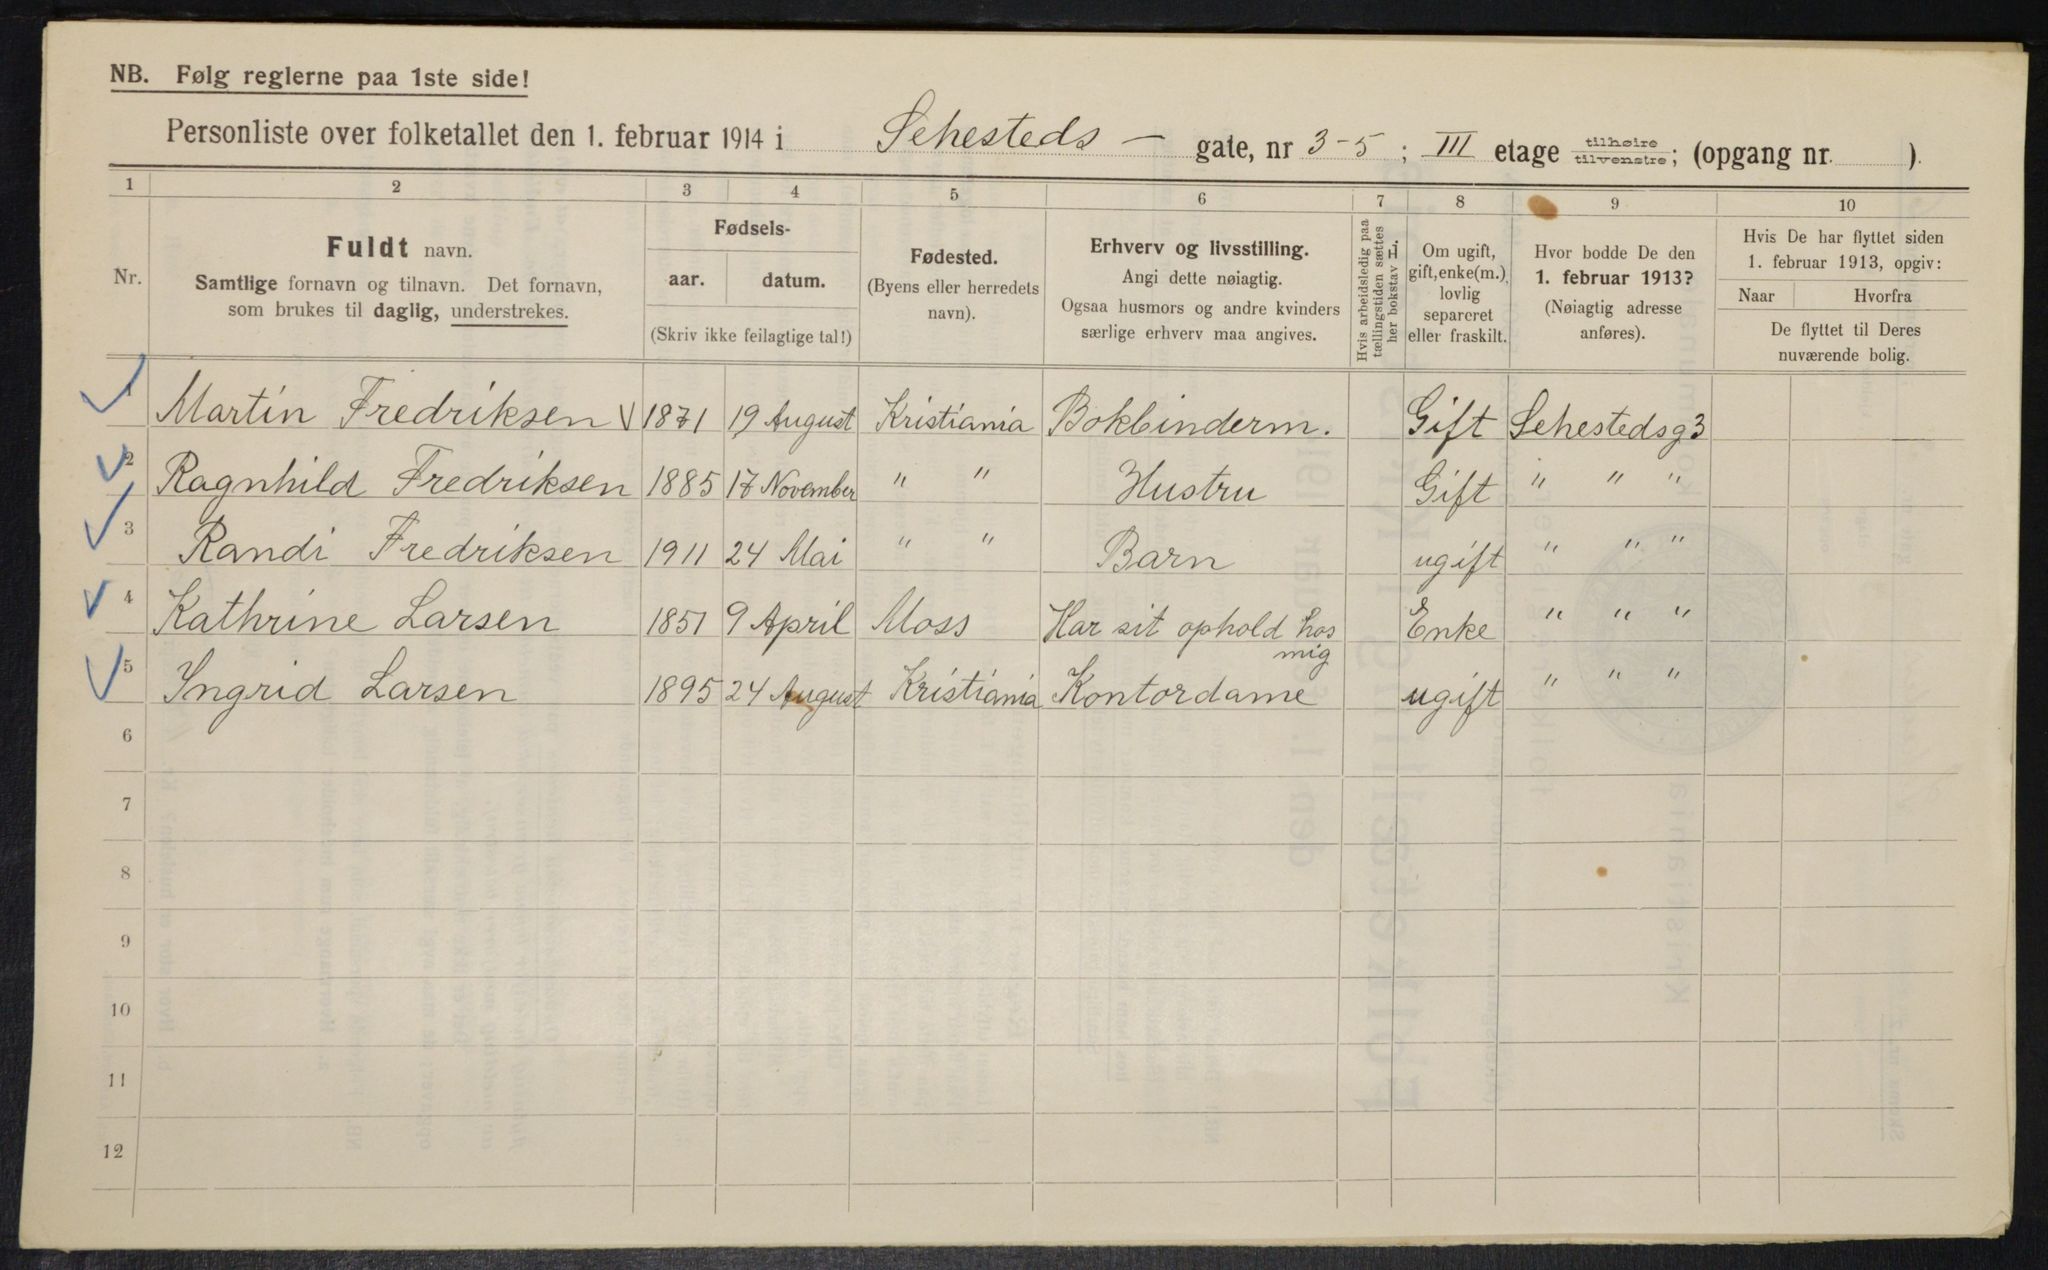 NB. Følg reglerne paa 1ste side!
Personliste over folketallet den 1. februar 1914 i Sehesteds - gate, nr 3-5 ; III etage tilhøire tilvenstre; (opgang nr. ).
1 2 3 4 5 6 7 8 9 10
Nr.
Fuldt navn.
Samtlige fornavn og tilnavn. Det fornavn,
som brukes til daglig, understrekes.
Fødsels-
aar. datum.
(Skriv ikke feilagtige tal!)
Fødested.
(Byens eller herredets
navn).
Erhverv og livsstilling.
Angi dette nøiagtig.
Ogsaa husmors og andre kvinders
særlige erhverv maa angives.
Hvis arbeidsledig paa
tællingstiden sættes
her bokstav L.
Om ugift,
gift, enke(m.),
lovlig
separeret
eller fraskilt.
Hvor bodde De den
1. februar 1913?
(Nøiagtig adresse
anføres).
Hvis De har flyttet siden
1. februar 1913, opgiv:
Naar Hvorfra
De flyttet til Deres
nuværende bolig.
1 Martin Fredriksen 1871 19 August Kristiania Bokbinderm. Gift Sehestedsg 3
2 Ragnhild Fredriksen 1885 17 November " " Hustru Gift " " "
3 Randi Fredriksen 1911 24 Mai " " Barn ugift " " "
4 Kathrine Larsen 1851 9 April Moss Har sit ophold hos mig Enke " " "
5 Ingrid Larsen 1895 24 August Kristiania Kontordame ugift " " "
6
7
8
9
10
11
12